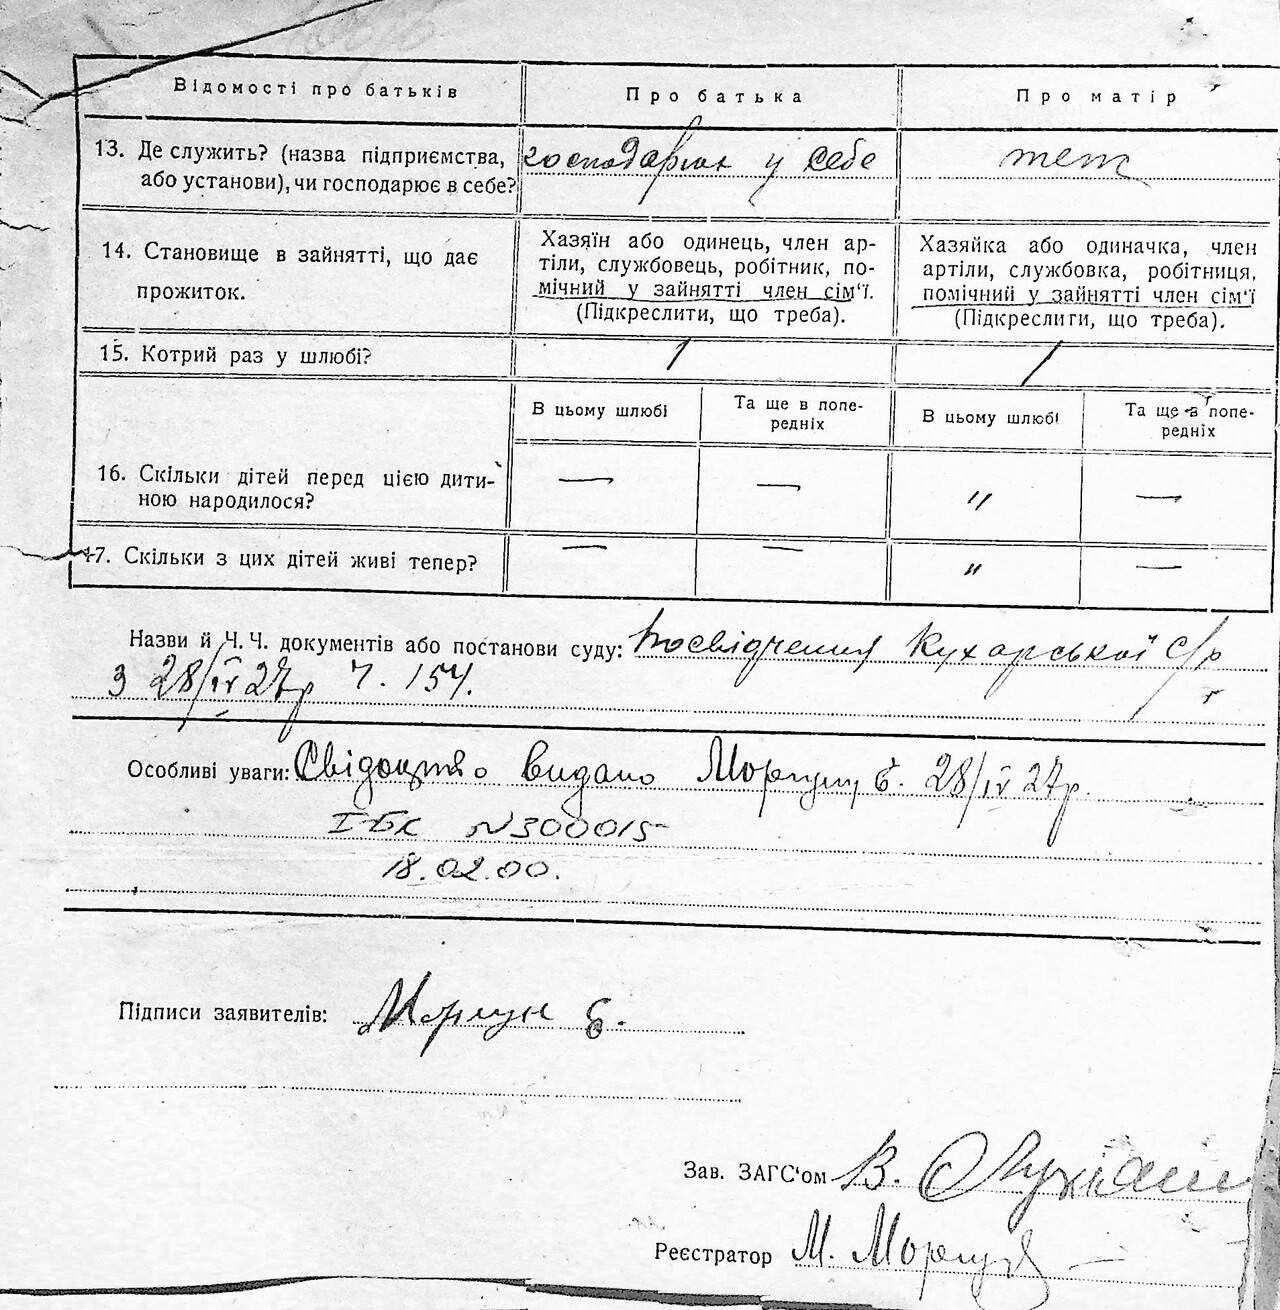 Відомості про батьків Про батька Про матір
13. Де служить? (назва підприємства, або установи), чи господарює в себе? господарює у себе теж
14. Становище в зайнятті, що дає прожиток.
Хазяїн або одинець, член ар-
тіли, службовець, робітник, по-
мічний у зайнятті член сім'ї.
(Підкреслити, що треба).
Хазяйка або одиначка, член
артіли, службовка, робітниця,
помічний у зайнятті член сім'ї
(Підкреслити, що треба).
15. Котрий раз у шлюбі? 1 1
В цьому шлюбі Та ще в попе-
редніх В цьому шлюбі Та ще в попе-
редніх
16. Скільки дітей перед цією дити-
ною народилося? — — " —
17. Скільки з цих дітей живі тепер? — — " —
Назви й Ч. Ч. документів або постанови суду: Посвідчення Кухарської с/р
з 28/IV 27р ч. 154.
Особливі уваги: Свідоцтво видано 28/IV 27р.
І-БК №300015
18.02.00.
Підписи заявителів:
Зав. ЗАГС'ом В.
Реєстратор М.